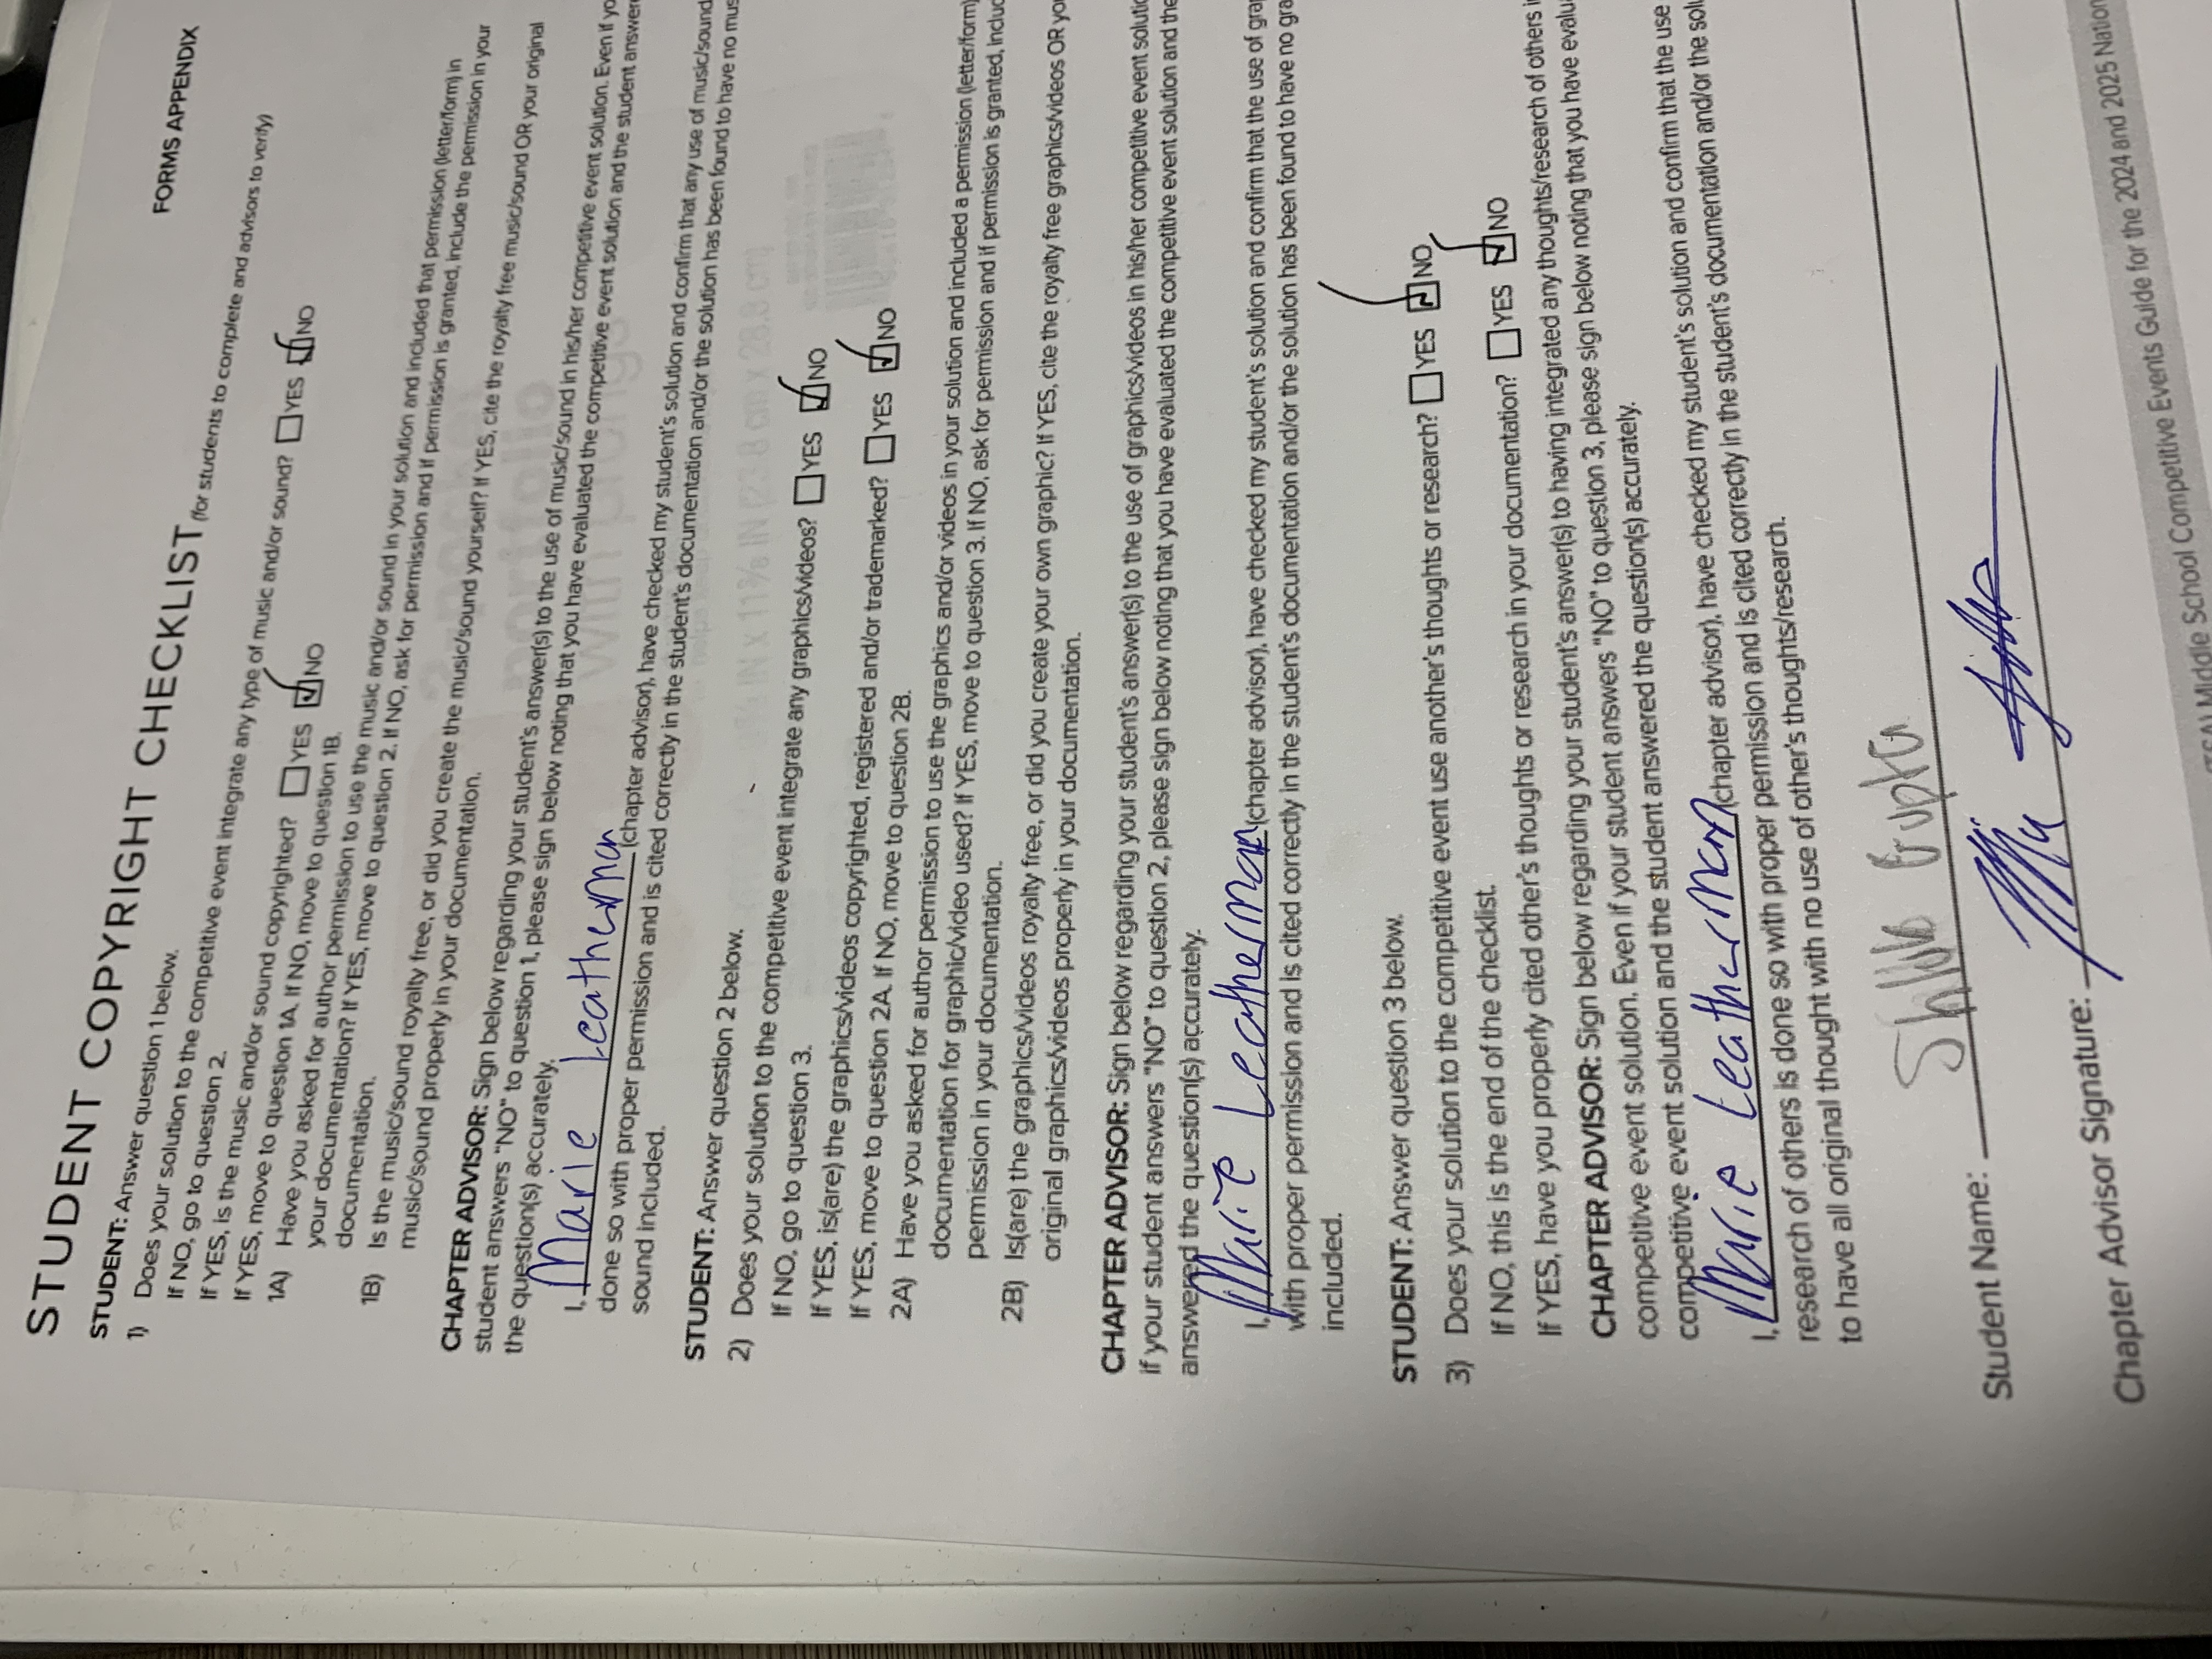 STUDENT COPYRIGHT CHECKLIST (for students to complete and advisors to verify)
FORMS APPENDIX
STUDENT: Answer question 1 below.
1) Does your solution to the competitive event integrate any type of music and/or sound? YES NO
If NO, go to question 2.
If YES, is the music and/or sound copyrighted? YES NO
If YES, move to question 1A. If NO, move to question 1B.
1A) Have you asked for author permission to use the music and/or sound in your solution and included that permission (letter/form) in
your documentation? If YES, move to question 2. If NO, ask for permission and if permission is granted, include the permission in your
documentation.
1B) Is the music/sound royalty free, or did you create the music/sound yourself? If YES, cite the royalty free music/sound OR your original
music/sound properly in your documentation.
CHAPTER ADVISOR: Sign below regarding your student's answer(s) to the use of music/sound in his/her competitive event solution. Even if yo
student answers "NO" to question 1, please sign below noting that you have evaluated the competitive event solution and the student answer
the question(s) accurately.
I, Marie Leatherman (chapter advisor), have checked my student's solution and confirm that any use of music/sound
done so with proper permission and is cited correctly in the student's documentation and/or the solution has been found to have no mus
sound included.
STUDENT: Answer question 2 below.
2) Does your solution to the competitive event integrate any graphics/videos? YES NO
If NO, go to question 3.
If YES, is(are) the graphics/videos copyrighted, registered and/or trademarked? YES NO
If YES, move to question 2A. If NO, move to question 2B.
2A) Have you asked for author permission to use the graphics and/or videos in your solution and included a permission (letter/form)
documentation for graphic/video used? If YES, move to question 3. If NO, ask for permission and if permission is granted, includ
permission in your documentation.
2B) Is(are) the graphics/videos royalty free, or did you create your own graphic? If YES, cite the royalty free graphics/videos OR yo
original graphics/videos properly in your documentation.
CHAPTER ADVISOR: Sign below regarding your student's answer(s) to the use of graphics/videos in his/her competitive event soluti
if your student answers "NO" to question 2, please sign below noting that you have evaluated the competitive event solution and the
answered the question(s) accurately.
I, Marie Leatherman (chapter advisor), have checked my student's solution and confirm that the use of gra
with proper permission and is cited correctly in the student's documentation and/or the solution has been found to have no gra
included.
STUDENT: Answer question 3 below.
3) Does your solution to the competitive event use another's thoughts or research? YES NO
If NO, this is the end of the checklist.
If YES, have you properly cited other's thoughts or research in your documentation? YES NO
CHAPTER ADVISOR: Sign below regarding your student's answer(s) to having integrated any thoughts/research of others i
competitive event solution. Even if your student answers "NO" to question 3, please sign below noting that you have evalu
competitive event solution and the student answered the question(s) accurately.
I, Marie Leatherman (chapter advisor), have checked my student's solution and confirm that the use
research of others is done so with proper permission and is cited correctly in the student's documentation and/or the solu
to have all original thought with no use of other's thoughts/research.
Student Name: Gupta
Chapter Advisor Signature:
(TSA) Middle School Competitive Events Guide for the 2024 and 2025 Nation